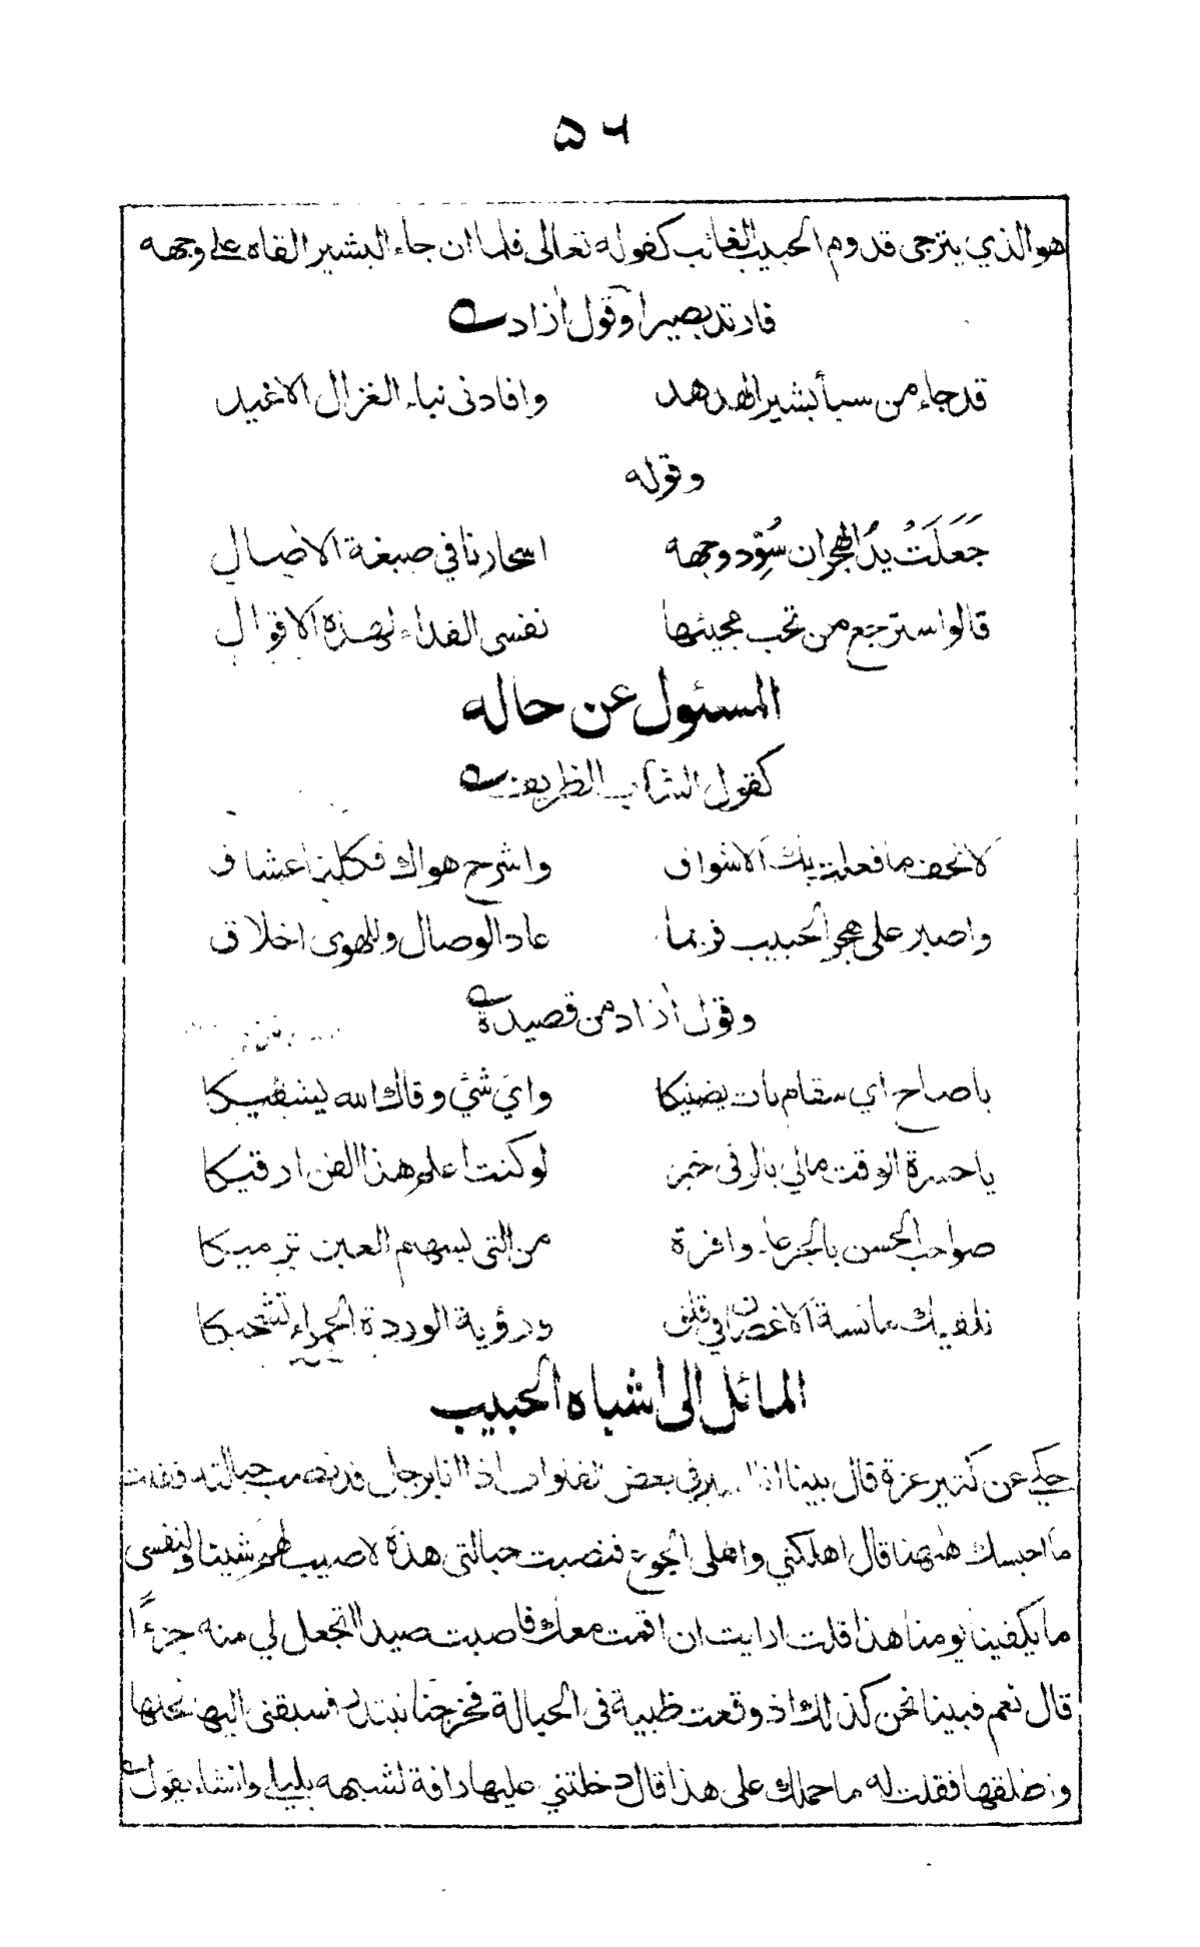 ۵۶
هو الذي يترجى قدوم الحبيب الغائب كقوله تعالى فلما ان جاء البشير القاه على وجهه
فارتد بصيرا وقول آزاد
قد جاء من سبأ بشير الهدهد وافادنى نباء الغزال الاغيد
وقوله
جَعَلَتْ يدُ الهجران سُوِّد وجهه اسحارنا في صبغة الاٰصال
قالوا سترجع من تحب مجيئها نفسى الفداء لهذه الاقوال
المسئول عن حاله
كقول الشاب الظريف
لا تخف ما فعلت بك الاشواق واشرح هواك فكلنا عشاق
واصبر على هجر الحبيب فربما عاد الوصال وللهوى اخلاق
وقول آزاد من قصيدة
يا صاح اي سقام بات يضنيكا واي شئ وقاك الله يشفيكا
يا حسرة الوقت مالي بالرقى خبر لو كنت اعلم هذا الفن ارقيكا
صواحب الحسن بالجرعاء وافرة من التى بسهم العين ترميكا
نلفيك مائسة الاغصان في قلق ورؤية الوردة الحمراء تشجيكا
المائل الى اشباه الحبيب
حكي عن كثير عزة قال بينا انا اسير في بعض الفلوات اذا انا برجل قد نصب حبالته فقلت
ما احبسك هٰهنا قال اهلكني واهلى الجوع فنصبت حبالتى هذه لاصيب لهم شيئا ولنفسى
ما يكفينا يومنا هذا قلت ارايت ان اقمت معك فاصبت صيدا اتجعل لي منه جزءًا
قال نعم فبينا نحن كذلك اذ وقعت ظبية فى الحبالة فخرجنا نبتدر فسبقنى اليها فحلها
واطلقها فقلت له ما حملك على هذا قال دخلتني عليها رافة لشبهه بليلى وانشاء يقول